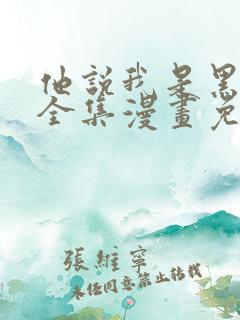 他說我是黑
全集漫畫免
張維寧
未经同意禁止转载